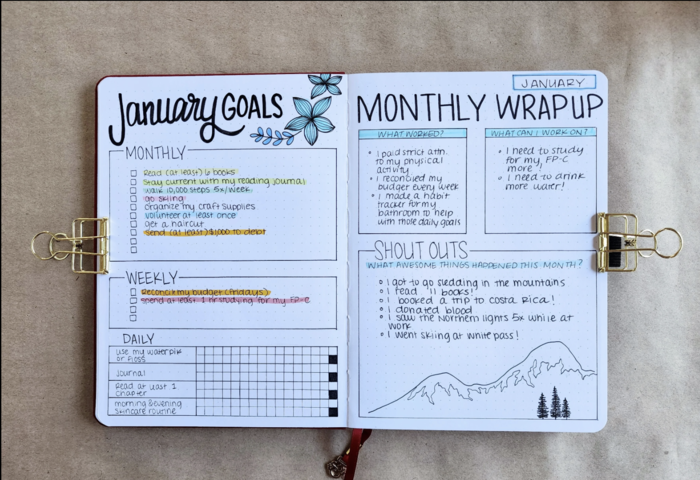 January GOALS
MONTHLY
Read (at least) 6 books
Stay current with my reading journal
walk 10,000 steps 5x/week
go skiing
organize my craft supplies
volunteer at least once
get a haircut
send (at least) $1,000 to debt
WEEKLY
Reconcile my budget (Fridays)
spend at least 1 hr studying for my FP-C
DAILY
use my waterpik
or floss
Journal
Read at least 1
chapter
morning & evening
skincare routine
JANUARY
MONTHLY WRAPUP
WHAT WORKED?
I paid strict attn.
to my physical
activity
I reconciled my
budget every week
I made a habit
tracker for my
bathroom to help
with more daily goals
WHAT CAN I WORK ON?
I need to study
for my FP-C
more!
I need to drink
more water!
SHOUT OUTS
WHAT AWESOME THINGS HAPPENED THIS MONTH?
I got to go sledding in the mountains
I read 11 books!
I booked a trip to Costa Rica!
I donated blood
I saw the Northern lights 5x while at
work
I went skiing at white pass!